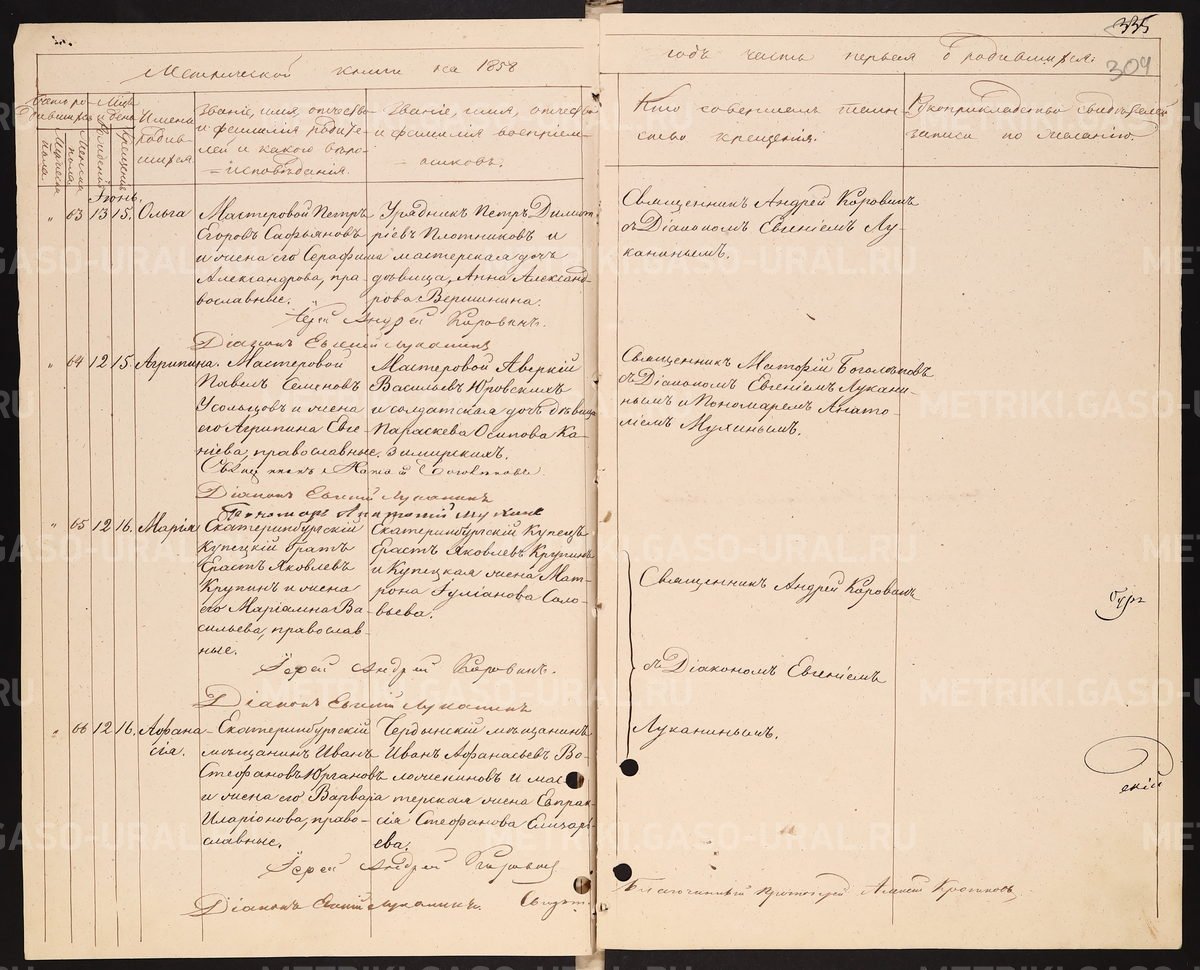 335
304
Метрической книги на 1858
годъ часть первая о родившихся.
Счетъ ро-
дившихся
Мужеска
пола.
Женска
пола
Мѣсяцъ
и день
Рожденія
Крещенія
Имена
родив-
шихся
Званіе, имя, отчество
и фамилія родите-
лей и какого вѣро-
исповѣданія.
Званіе, имя, отчество
и фамилія воспріем-
никовъ.
Кто совершалъ таин-
ство крещенія.
Рукоприкладство свидѣтелей
записи по желанію.
Іюнь.
" 63 13 15. Ольга
Мастеровой Петръ
Егоровъ Сафьяновъ
и жена его Серафима
Александрова, пра-
вославные.
Урядникъ Петръ Димит-
ріевъ Плотниковъ и
мастерская дочь
дѣвица, Анна Александ-
рова Вершинина.
Священникъ Андрей Коровинъ
съ Діакономъ Евгеніемъ Лу-
канинымъ.
Іерей Андрей Коровинъ.
Діаконъ Евгеній Луканинъ
" 64 12 15. Агрипина.
Мастеровой
Павелъ Семеновъ
Усольцовъ и жена
его Агрипина Евге-
ніева, православные.
Мастеровой Аверкій
Васильевъ Юровскихъ
и солдатская дочь дѣвица
Параскева Осипова Ка-
зимирскихъ.
Священникъ Матфій Боголѣповъ
съ Діакономъ Евгеніемъ Лукани-
нымъ и Пономаремъ Анато-
ліемъ Мухинымъ.
Діаконъ Евгеній Луканинъ
Пономарь Анатолій Мухинъ
" 65 12 16. Марія
Екатеринбургскій
купецкій братъ
Ерастъ Яковлевъ
Крупинъ и жена
его Маріамна Ва-
сильева, православ-
ные.
Екатеринбургскій Купецъ
Ерастъ Яковлевъ Крупинъ
и Купецкая жена Мат-
рона Іуліанова Соло-
вьева.
Священникъ Андрей Коровинъ
съ Діакономъ Евгеніемъ
Луканинымъ.
Іерей Андрей Коровинъ.
Діаконъ Евгеній Луканинъ
" 66 12 16. Афана-
сія.
Екатеринбургскій
мѣщанинъ Иванъ
Стефановъ Юргановъ
и жена его Варвара
Иларіонова, право-
славные.
Чердынскій мѣщанинъ
Иванъ Афанасьевъ Во-
ложениновъ и мас-
терская жена Евпрак-
сія Стефанова Елизарь-
ева.
Іерей Андрей Коровинъ
Діаконъ Евгеній Луканинъ.
Благочинный Протоіерей
ений
METRIKI.GASO-URAL.RU